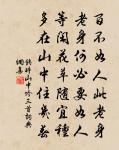 百不如人此老身
老身何必要如人
等閑花草隨宜種
多在山中住幾春
山中吟三首詞典
網集